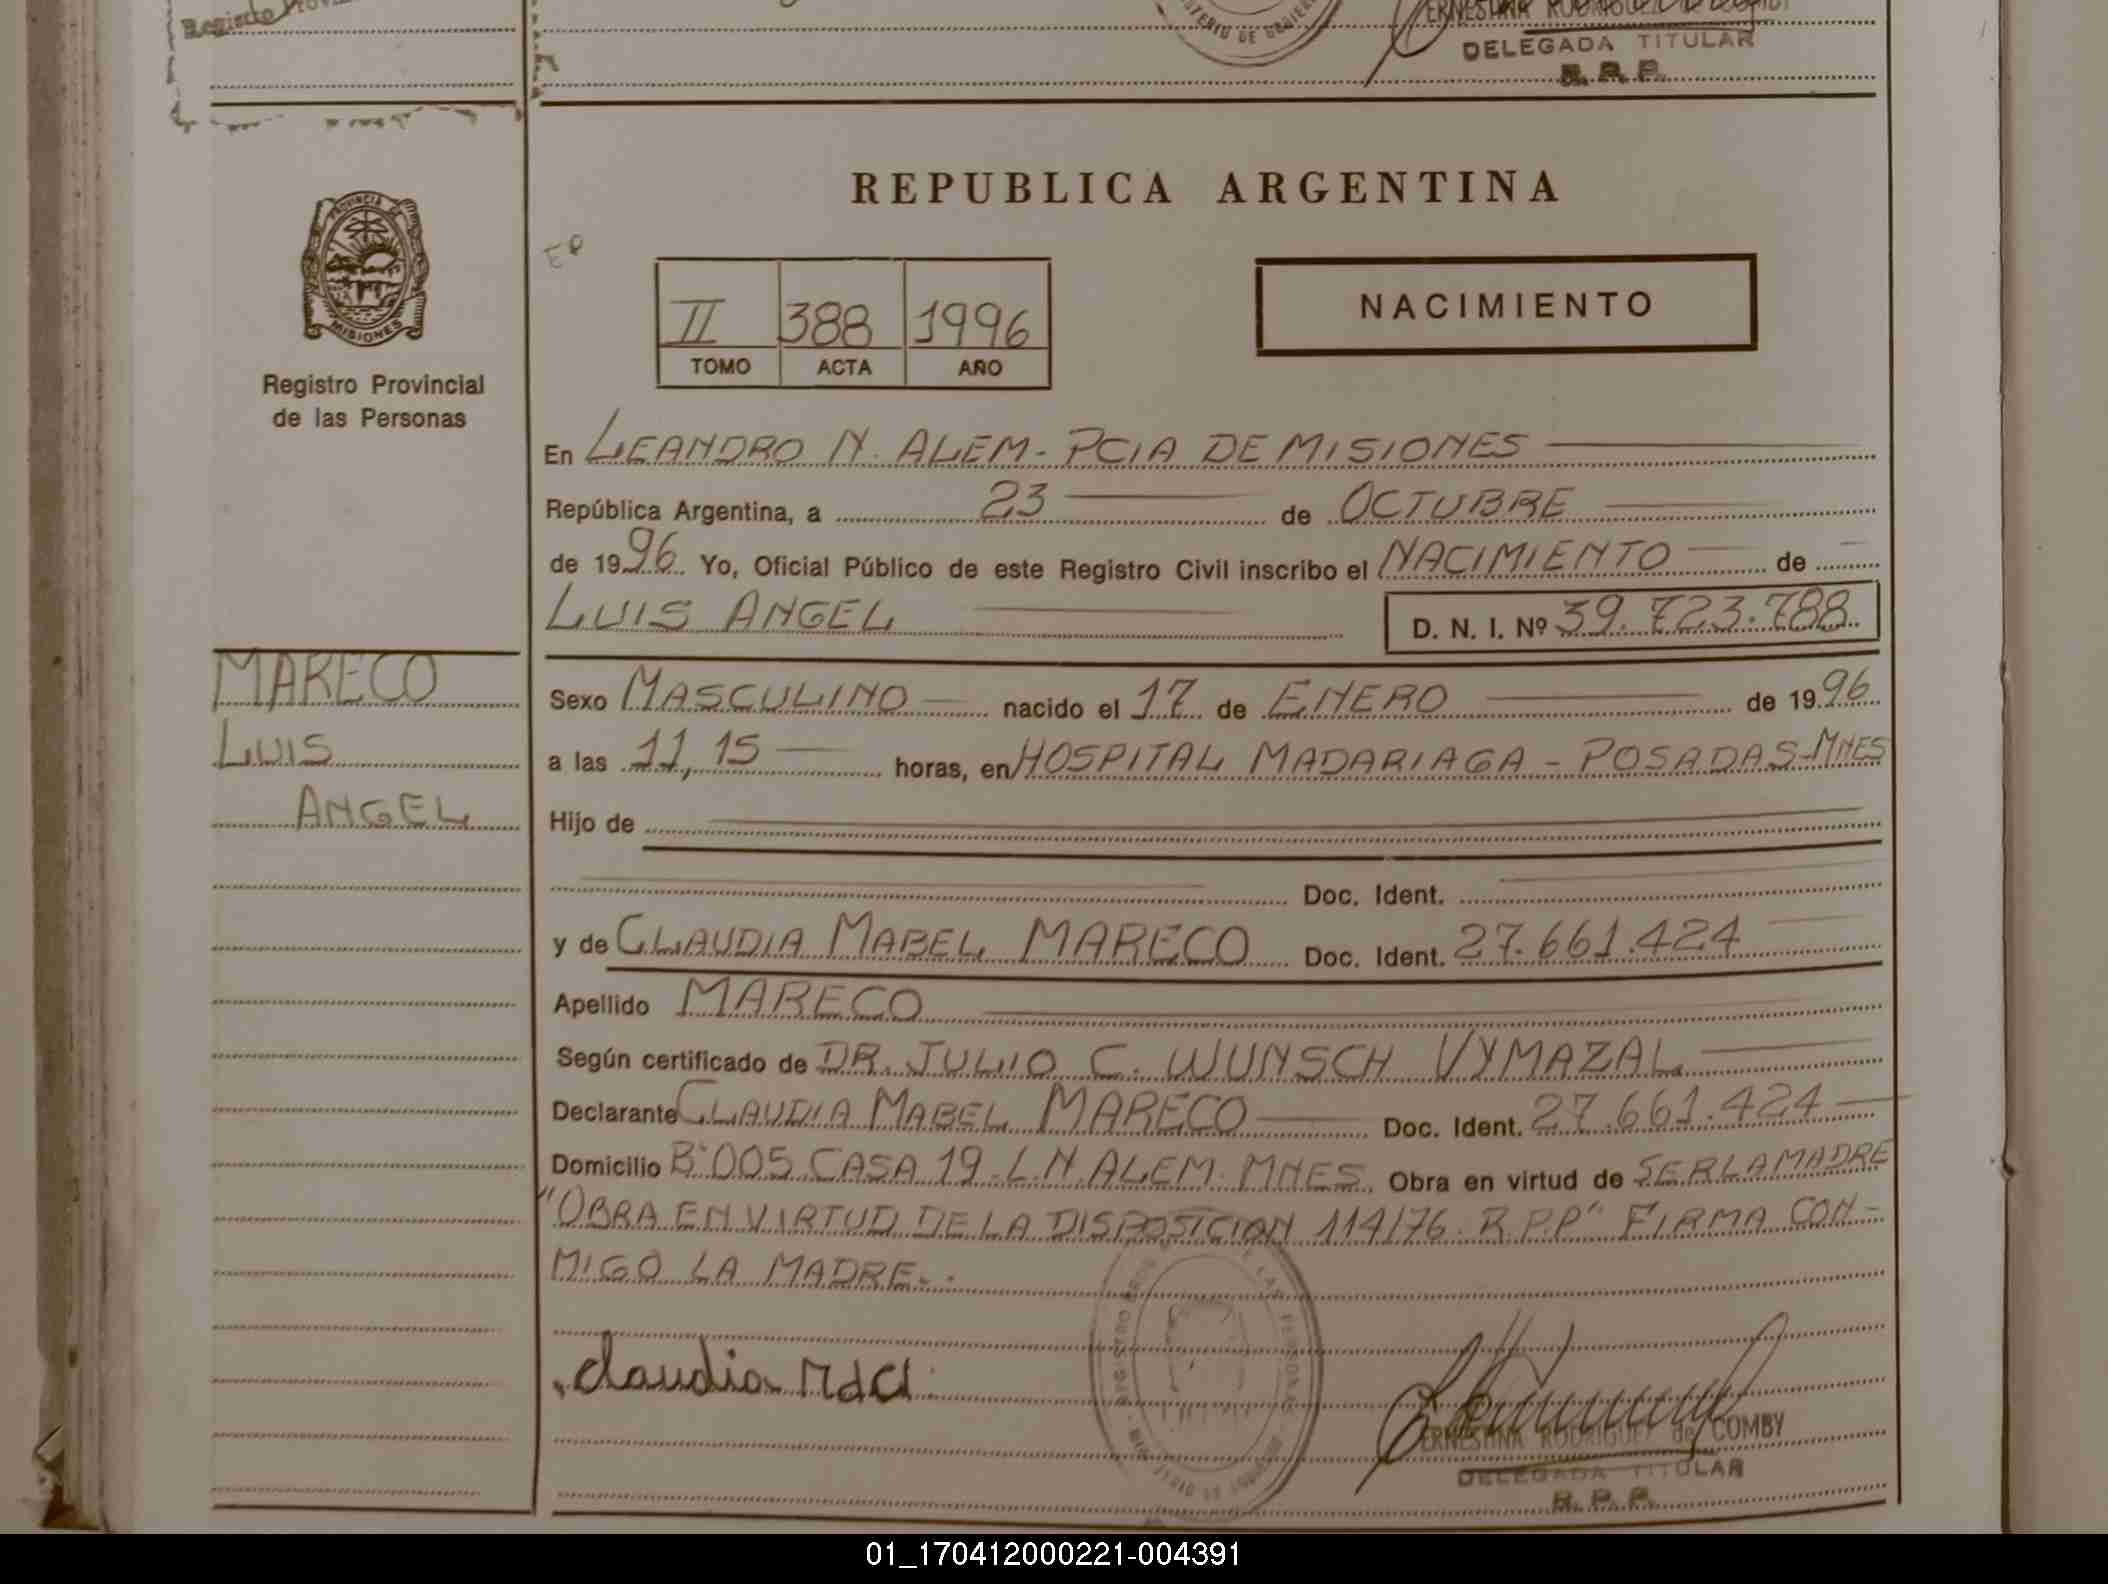 Registro
ERNESTINA RODRIGUEZ
DELEGADA TITULAR
R. P. P.
PROVINCIA DE
MISIONES
Registro Provincial
de las Personas
MARECO
LUIS
ANGEL
REPUBLICA ARGENTINA
II 388 1996
TOMO ACTA AÑO
NACIMIENTO
En LEANDRO N. ALEM - PCIA DE MISIONES
República Argentina, a 23 de OCTUBRE
de 1996 Yo, Oficial Público de este Registro Civil inscribo el NACIMIENTO de
LUIS ANGEL D. N. I. Nº 39.723.788
Sexo MASCULINO nacido el 17 de ENERO de 1996
a las 11,15 horas, en HOSPITAL MADARIAGA - POSADAS-MNES
Hijo de
Doc. Ident.
y de CLAUDIA MABEL MARECO Doc. Ident. 27.661.424
Apellido MARECO
Según certificado de DR. JULIO C. WUNSCH VYMAZAL
Declarante CLAUDIA MABEL MARECO Doc. Ident. 27.661.424
Domicilio Bº 005 CASA 19 - L.N. ALEM. MNES Obra en virtud de SER LA MADRE
"OBRA EN VIRTUD DE LA DISPOSICION 114/76 R.P.P" FIRMA CON-
MIGO LA MADRE.-
claudia
ERNESTINA RODRIGUEZ de COMBY
DELEGADA TITULAR
R. P. P.
01_170412000221-004391